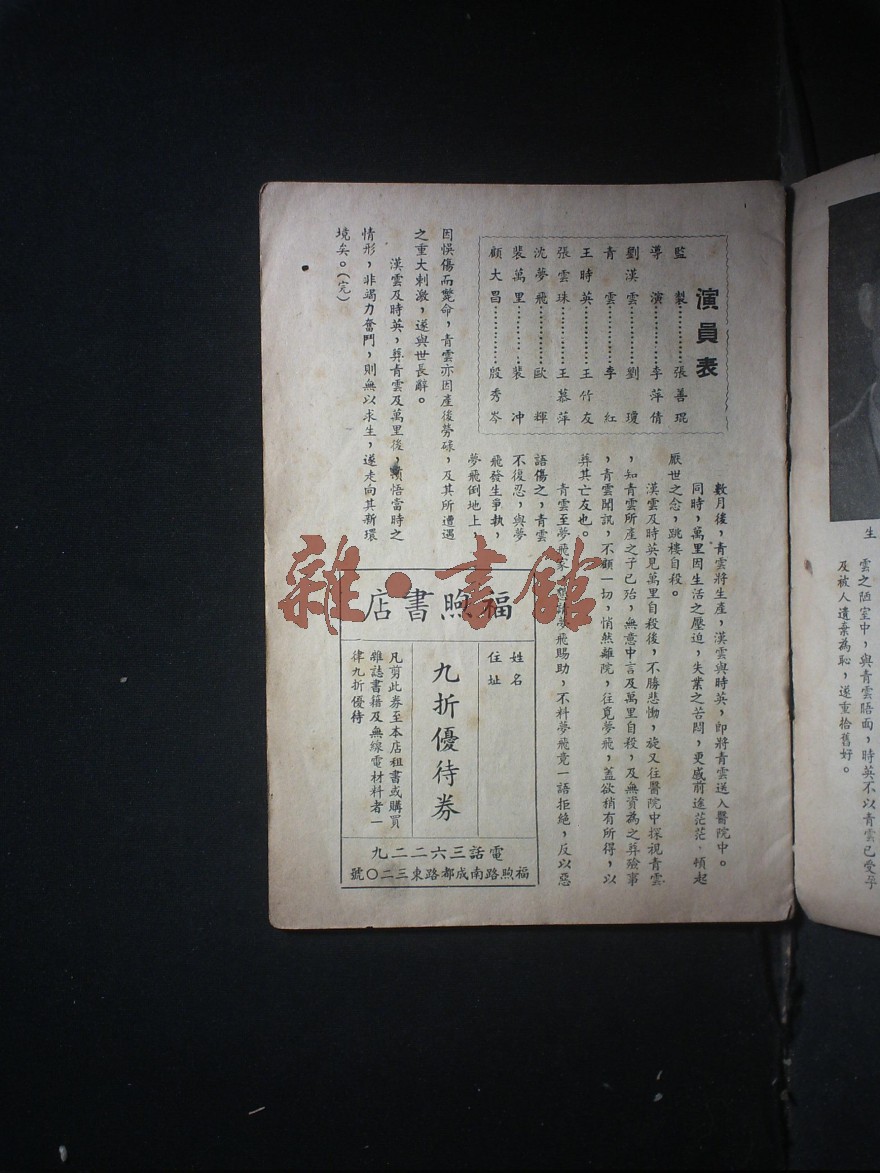 生
雲之陋室中，與青雲晤面，時英不以青雲已受孕
及被人遺棄為恥，遂重拾舊好。
演員表
監製…………張善琨
導演…………李萍倩
劉漢雲…………劉瓊
青雲…………李紅
王時英…………王竹友
張雲珠…………王慕萍
沈夢飛…………歐輝
裴萬里…………裴冲
顧大昌…………殷秀岑
數月後，青雲將生產，漢雲與時英，即將青雲送入醫院中。
同時，萬里因生活之壓迫，失業之苦悶，更感前途茫茫，頓起
厭世之念，跳樓自殺。
漢雲及時英見萬里自殺後，不勝悲慟，旋又往醫院中探視青雲
，知青雲所產之子已殆，無意中言及萬里自殺，及無資為之葬殮事
，青雲聞訊，不顧一切，悄然離院，往覓夢飛，蓋欲稍有所得，以
葬其亡友也。
青雲至夢飛家，懇請夢飛賜助，不料夢飛竟一語拒絶，反以惡
語傷之，青雲
不復忍，與夢
飛發生爭執，
夢飛倒地上，
因悞傷而斃命，青雲亦因產後勞碌，及其所遭遇
之重大刺激，遂與世長辭。
漢雲及時英，葬青雲及萬里後，頓悟當時之
情形，非竭力奮鬥，則無以求生，遂走向其新環
境矣。（完）
福煦書店
姓名
住址
九折優待券
凡剪此券至本店租書或購買
雜誌書籍及無線電材料者一
律九折優待
電話三六二二九
福煦路南成都路東三二〇號
雜·書館